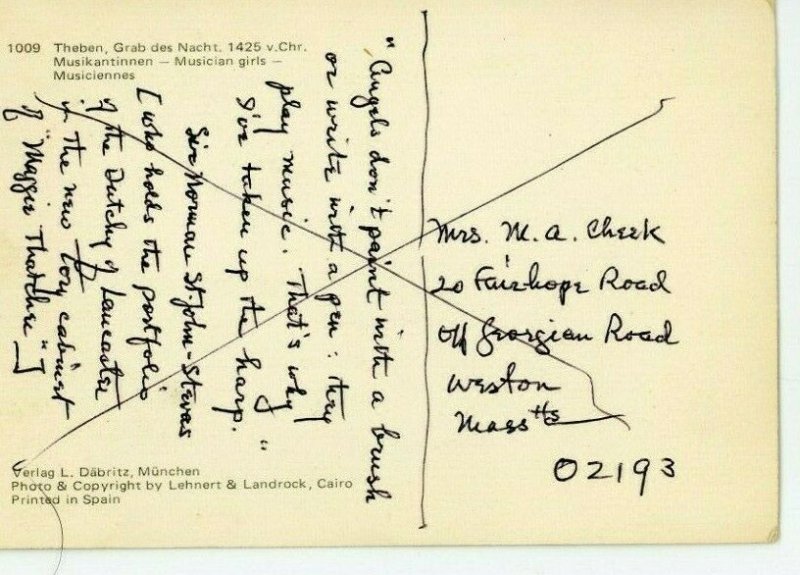 1009 Theben, Grab des Nacht. 1425 v.Chr.
Musikantinnen — Musician girls —
Musiciennes
"Angels don't paint with a brush
or write with a pen: they
play music. That's why
I've taken up the harp."
Sir Norman St. John-Stevas
[who holds the portfolio
of the Dutchy of Lancaster
in the new Tory cabinet
of "Maggie Thatcher"]
Mrs. M. A. Cheek
20 Fairhope Road
Off Georgian Road
Weston
Masstts
02193
Verlag L. Däbritz, München
Photo & Copyright by Lehnert & Landrock, Cairo
Printed in Spain